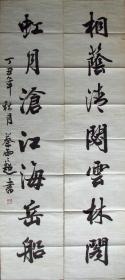 桐蔭清閟雲林閣
虹月滄江海岳船
丁丑年秋月
書